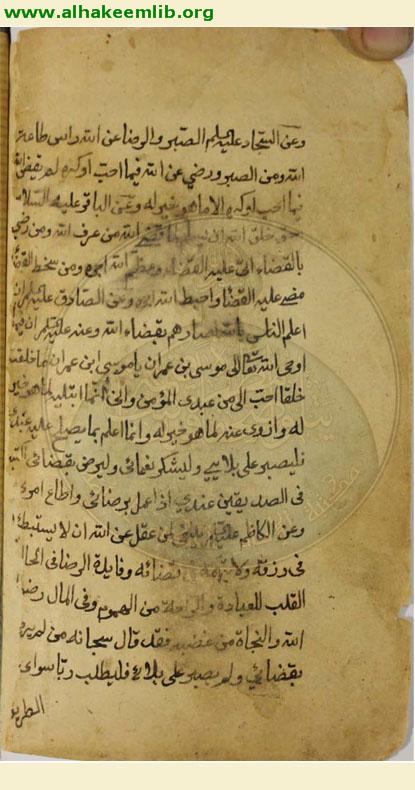 www.alhakeemlib.org
وعن السجاد عليه السلم الصبر والرضا عن الله راس طاعة
الله ومن الصبر ورضي عن الله فيما احب او كره لم يقض الله
فيما احب او كره الا ما هو خير له وعن الباقر عليه السلام
خلق الله ان يسلم لما قضى الله من عرف الله ومن رضي
بالقضاء اتى عليه القضاء وعظم الله اجره ومن سخط القضاء
مضى عليه القضا واحبط الله اجره وعن الصادق عليه السلم ان
اعلم الناس بالله ارضاهم بقضاء الله وعنه عليه السلم ان فيما
اوحى الله تعالى موسى بن عمران ياموسى ابن عمران ما خلقت
خلقا احب الى من عبدي المؤمن واني انما ابتليه لما هو خير
له وازوى عنه لما هو خير له وانا اعلم بما يصلح عليه عبدي
فليصبر على بلايي وليشكر نعمائى وليرض بقضائى اكتبه
فى الصديقين عندي اذا عمل برضائى واطاع امرى
وعن الكاظم عليه السلم ينبغي لمن عقل عن الله ان لا يستبطئه
فى رزقه ولا يتهمه فى قضائه وفايدة الرضا فى الحال
القلب للعبادة والراحة من الهموم وفى المال رضا
الله والنجاة من غضبه فقد قال سبحانه من لم يرض
بقضائي ولم يصبر على بلائى فليطلب ربا سواى
الطريق